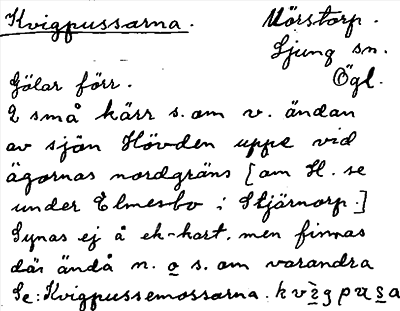 Kvigpussarna. Mörstorp.
Ljung sn.
Ögl.
Gölar förr.
2 små kärr s. om v. ändan
av sjön Hövden uppe vid
ägornas nordgräns [om H. se
under Elmesbo i Stjärnorp.]
Synas ej å ek-kart. men finnas
där ändå n. o s. om varandra
Se: Kvigpussemossarna.